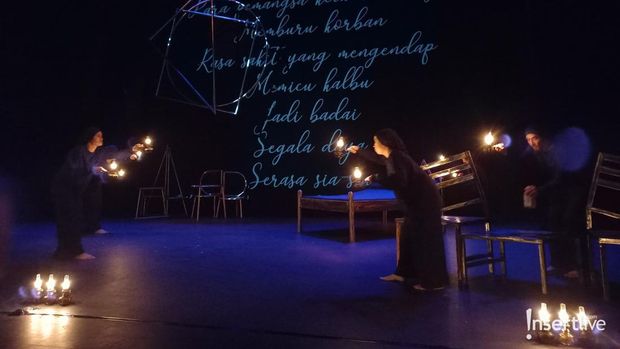 Para semangsa
Memburu korban
Rasa sakit yang mengendap
Memicu kalbu
Jadi badai
Segala daya
Serasa sia-sia
!nsertlive